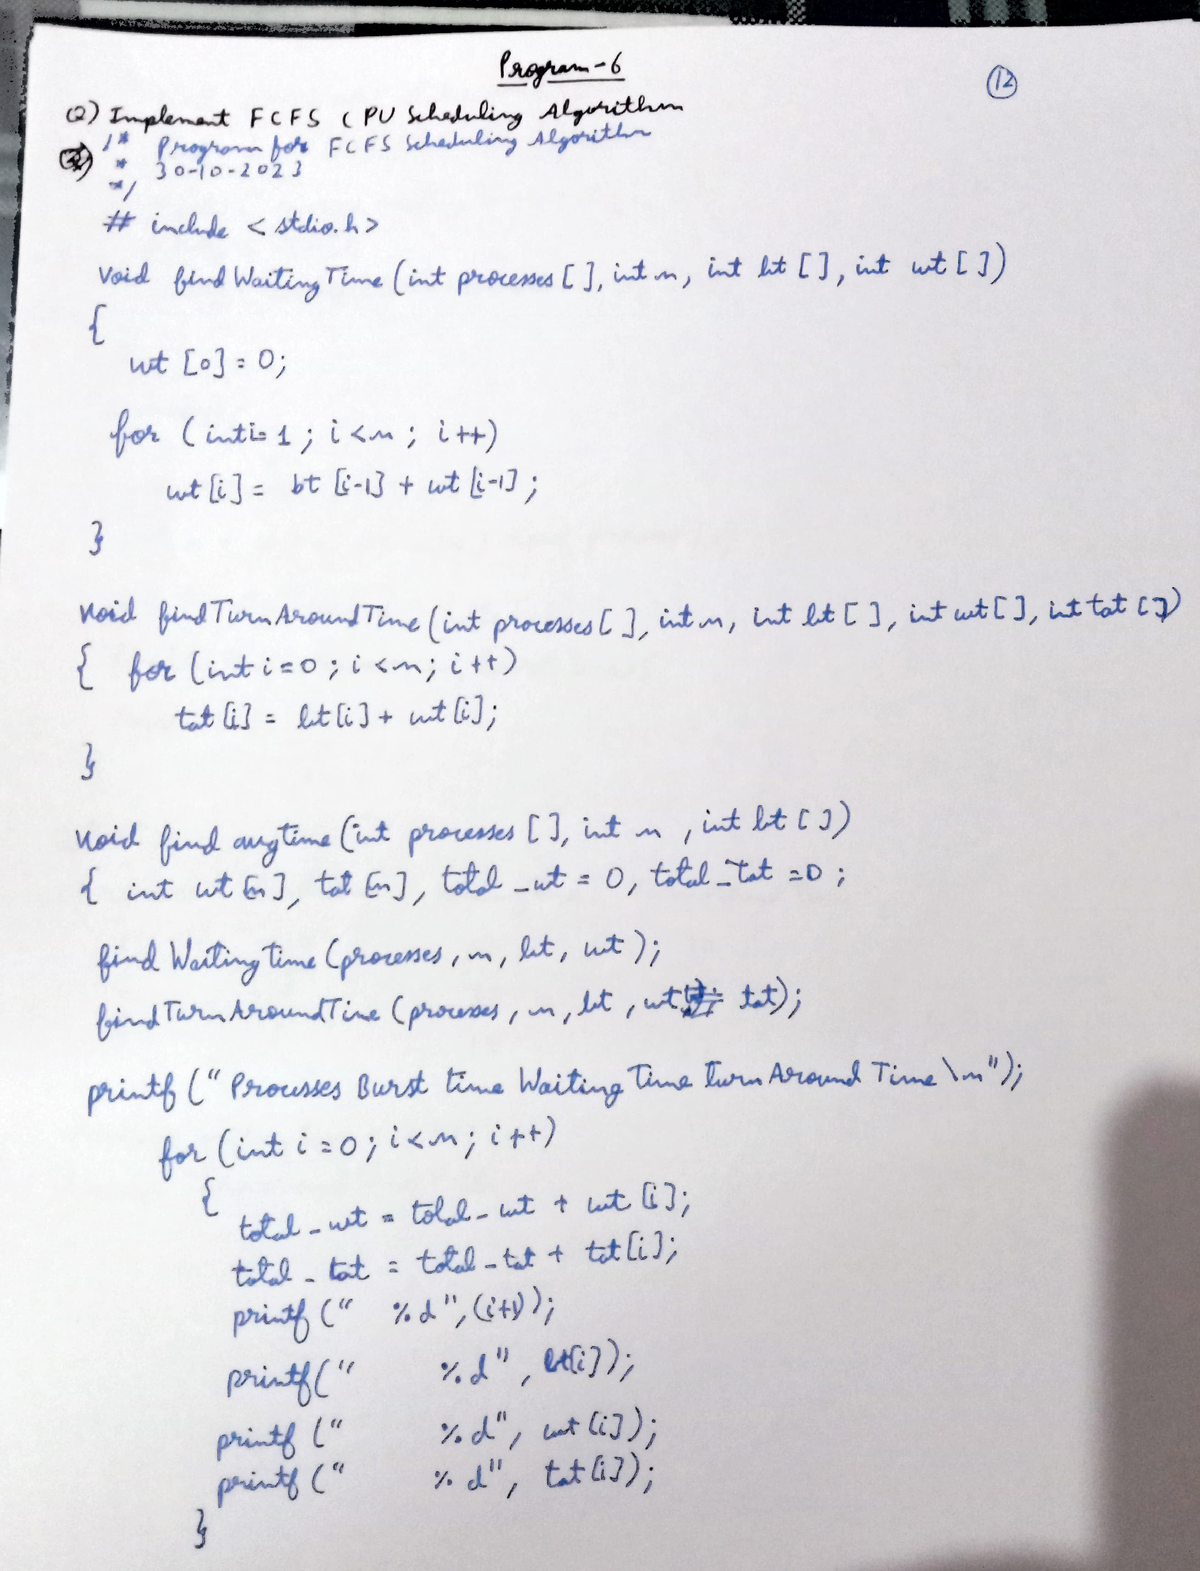 Program-6
12
Q) Implement FCFS CPU Scheduling Algorithm
/* Program for FCFS Scheduling Algorithm
* 30-10-2023
*/
# include < stdio.h>
void findWaitingTime (int processes [ ], int n, int bt [ ], int wt [ ])
{
wt [0] = 0;
for ( int i= 1 ; i < n ; i ++)
wt [i] = bt [i-1] + wt [i-1] ;
}
void findTurnAroundTime (int processes [ ], int n, int bt [ ], int wt [ ], int tat [ ])
{ for (int i = 0 ; i < n; i ++)
tat [i] = bt [i] + wt [i];
}
void find avgtime (int processes [ ], int n , int bt [ ])
{ int wt [n], tat [n], total _wt = 0, total _tat = 0 ;
findWaitingtime (processes, n, bt, wt );
findTurnAroundTime (processes, n, bt , wt, tat);
printf (" Processes Burst time Waiting Time turn Around Time \n");
for (int i = 0; i < n; i ++)
{
total _ wt = total _ wt + wt [i];
total _ tat = total _ tat + tat [i];
printf (" %d", (i+1));
printf (" %d" , bt[i]);
printf (" %d", wt [i]);
printf (" %d", tat [i]);
}